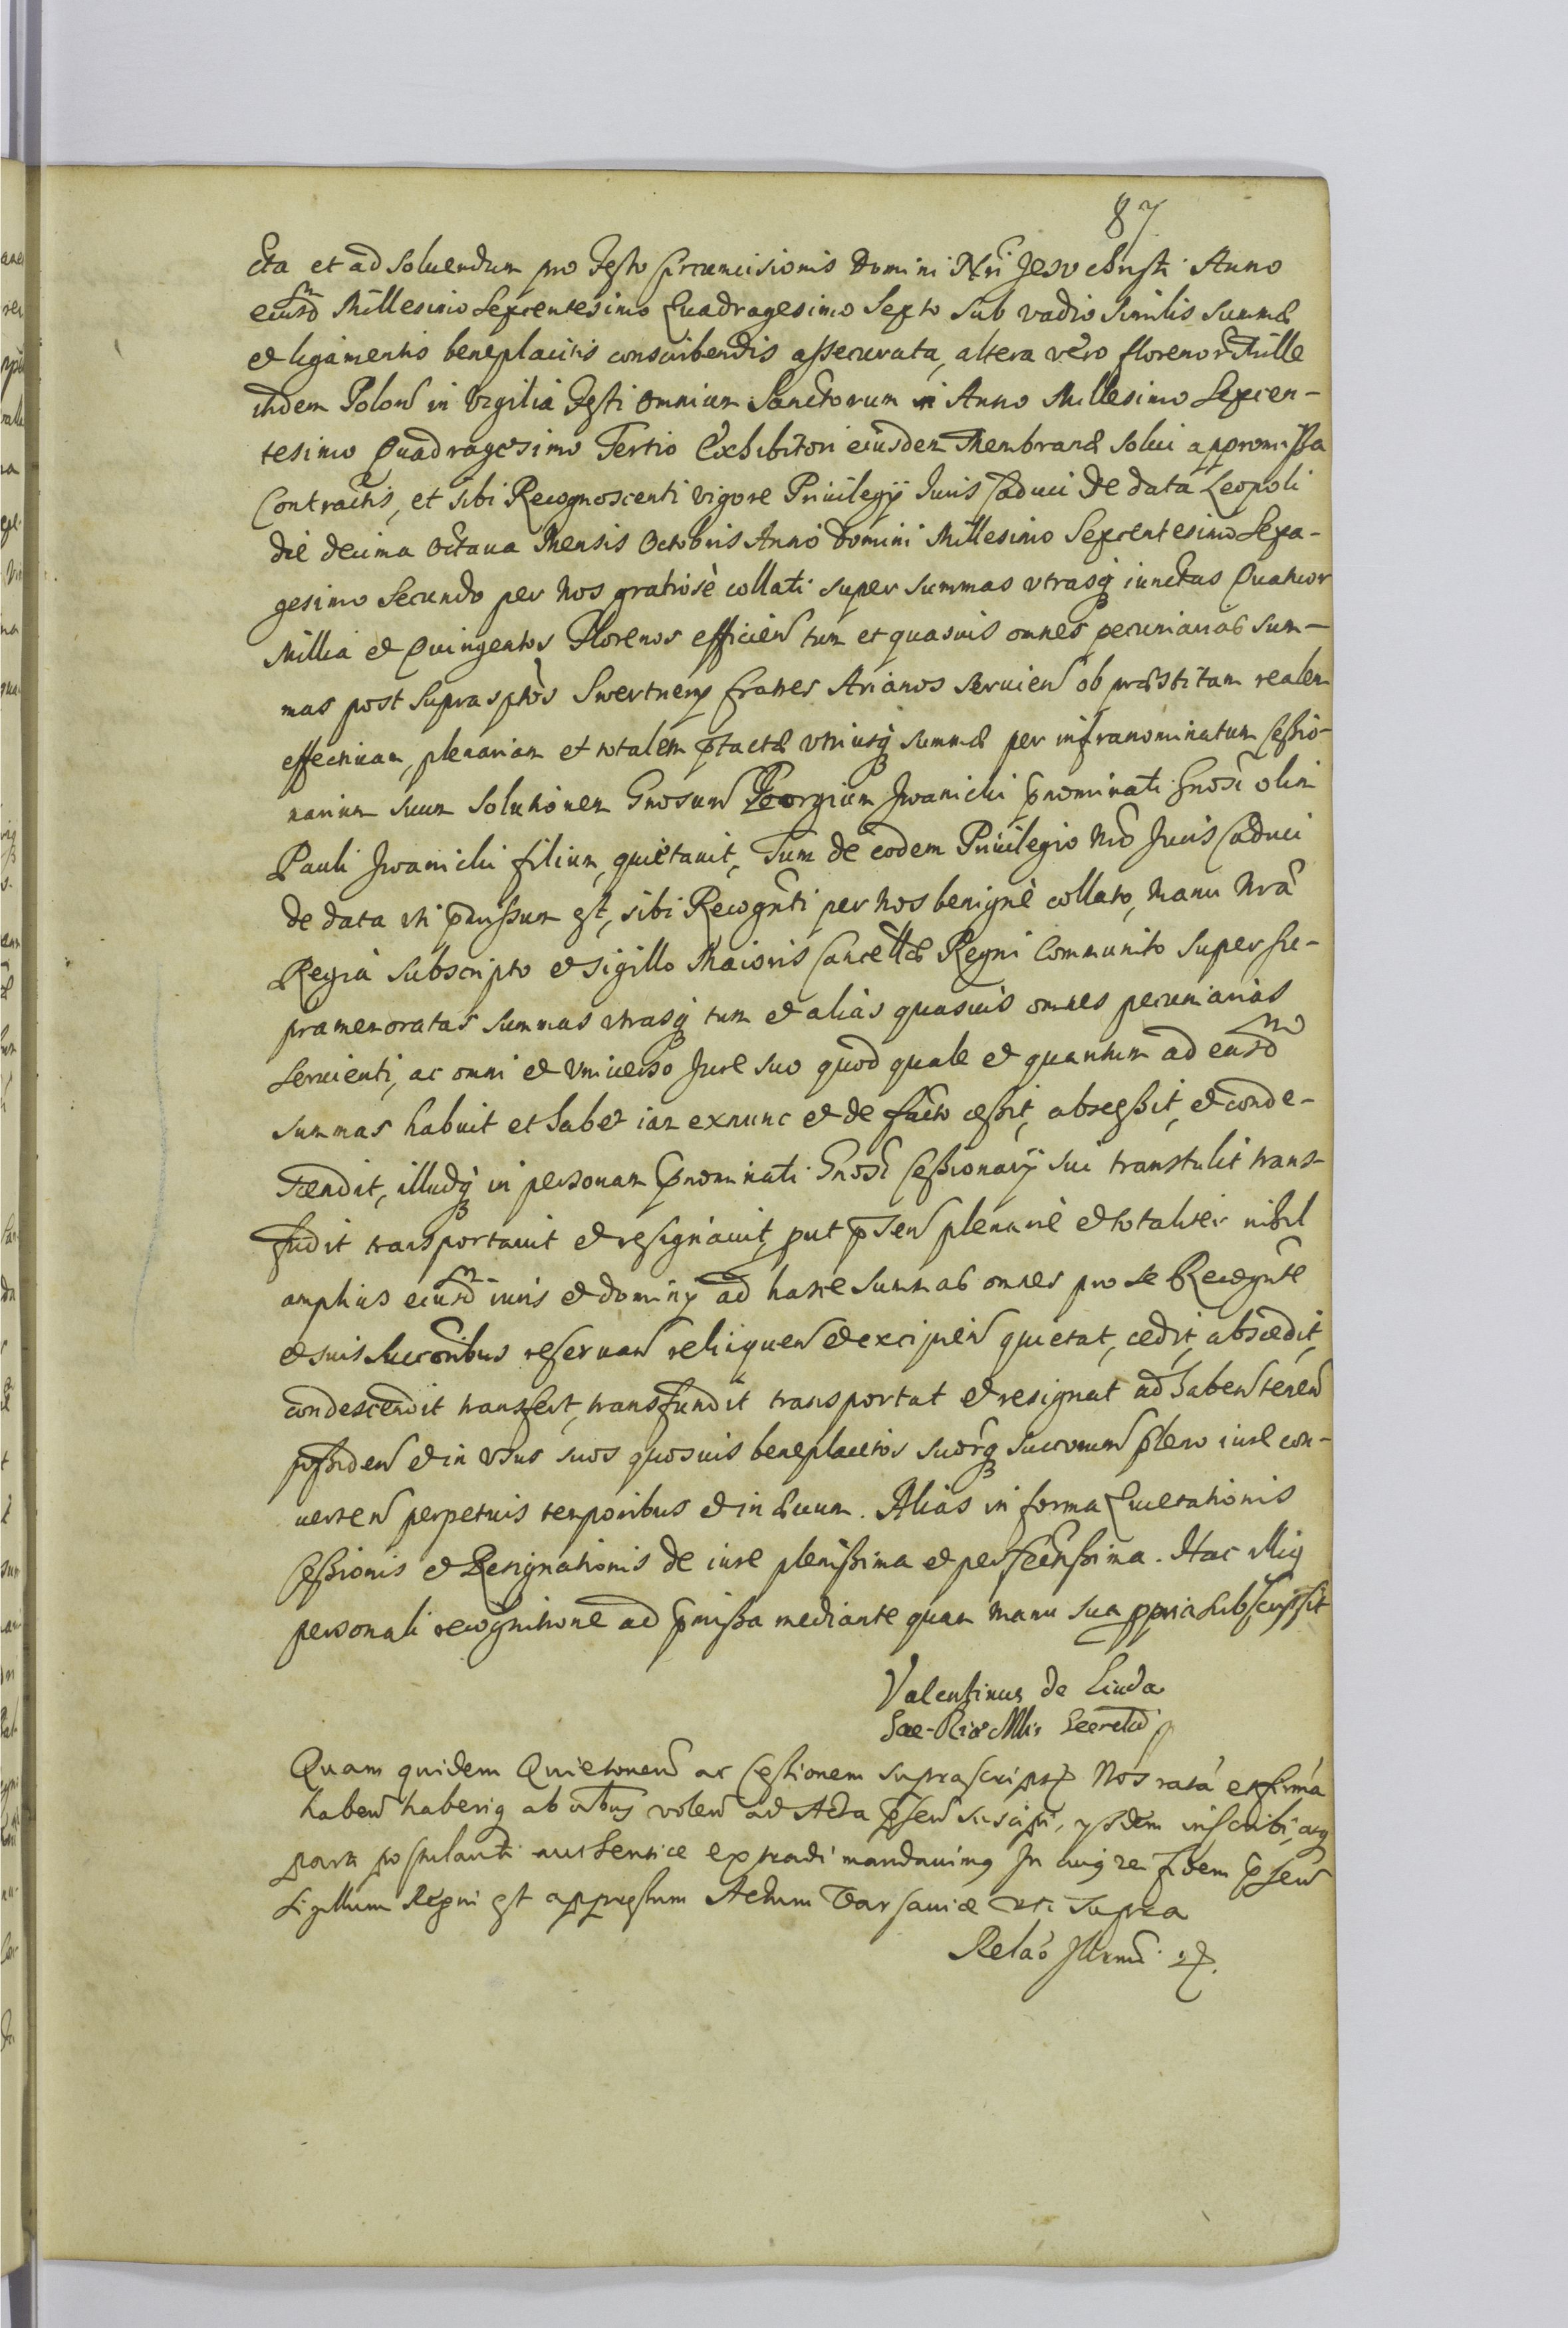 87
cta et ad soluendum pro Festo Circumcisionis Domini Nri Jesv christi Anno
eiusdm Millesimo Sexcentesimo Quadragesimo Sexto sub vadio similis summæ
et ligamentis beneplacitis conscribendis assecurata, altera vero florenor Mille
itidem Polon in Vigilia Festi omnium Sanctorum in Anno Millesimo Sexcen-
tesimo Quadragesimo Tertio Exhibitori eiusdem Membranæ solui appromissa
Contractis, et sibi Recognoscenti vigore Priuilegÿ Juris Caduci de data Leopoli
die decima octaua Mensis Octobris Anno Domini Millesimo Sexcentesimo Sexa-
gesimo Secundo per Nos gratiosè collati super summas vtrasq iunctas Quatuor
Millia et Quingentos Florenos efficien tum et quasuis omnes pecuniarias sum-
mas post suprasptos Swertnery fratres Arianos seruien ob præstitam realem
effectiuam, plenariam et totalem ptactæ vtriusq summæ per infranominatum Cessio-
narium suum solutionem Gnosum Georgium Jwanicki pnominati Gnosi olim
Pauli Jwanicki filium, quietauit, Tum de eodem Priuilegio Nro Juris Caduci
de data vti pmissum est, sibi Recognti per Nos benignè collato, Manu Nrâ
Regia subscripto et sigillo Maioris Cancellæ Regni Communito super su-
pramemoratas summas vtrasq tum et alias quasuis omnes pecuniarias
seruienti, ac omni et Vniuerso Jure suo quod quale et quantum ad easdm
summas habuit et habet iam exnunc et de facto cessit, abscessit, et conde-
scendit, illudq in personam pnominati Gnosi Cessionarÿ sui transtulit trans-
fudit transportauit et resignauit, put psen plenariè et totaliter nihil
amplius eiusdm iuris et dominÿ ad hasce summas omnes pro se Recognte
et suis Succoribus reseruan relinquen et excipien quietat, cedit, abscedit,
condescendit transfert, transfundit transportat et resignat ad haben tenen
possiden et in vsus suos quosuis beneplacitos suorq succorum pleno iure con-
uerten perpetuis temporibus et in æuum. Alias in forma Quietationis
Cessionis et Resignationis de iure plenissima et perfectissima. Hac illiq
personali recognitione ad pmissa mediante quam manu sua ppria subscripsit
Valentinus de Linda
Sae-Riæ Mtis Secretari
Quam quidem Quietonem ac Cessionem suprascript Nos rata et firma
haben haberiq ab oibus volen ad Acta psen suscipi, ysdem inscribi, atq
parti postulanti autentice extradi mandauimq In cuiq rei fidem psen
Sigillum Regni est appressum Actum Varsauiæ vti supra
Relao Jllrmi